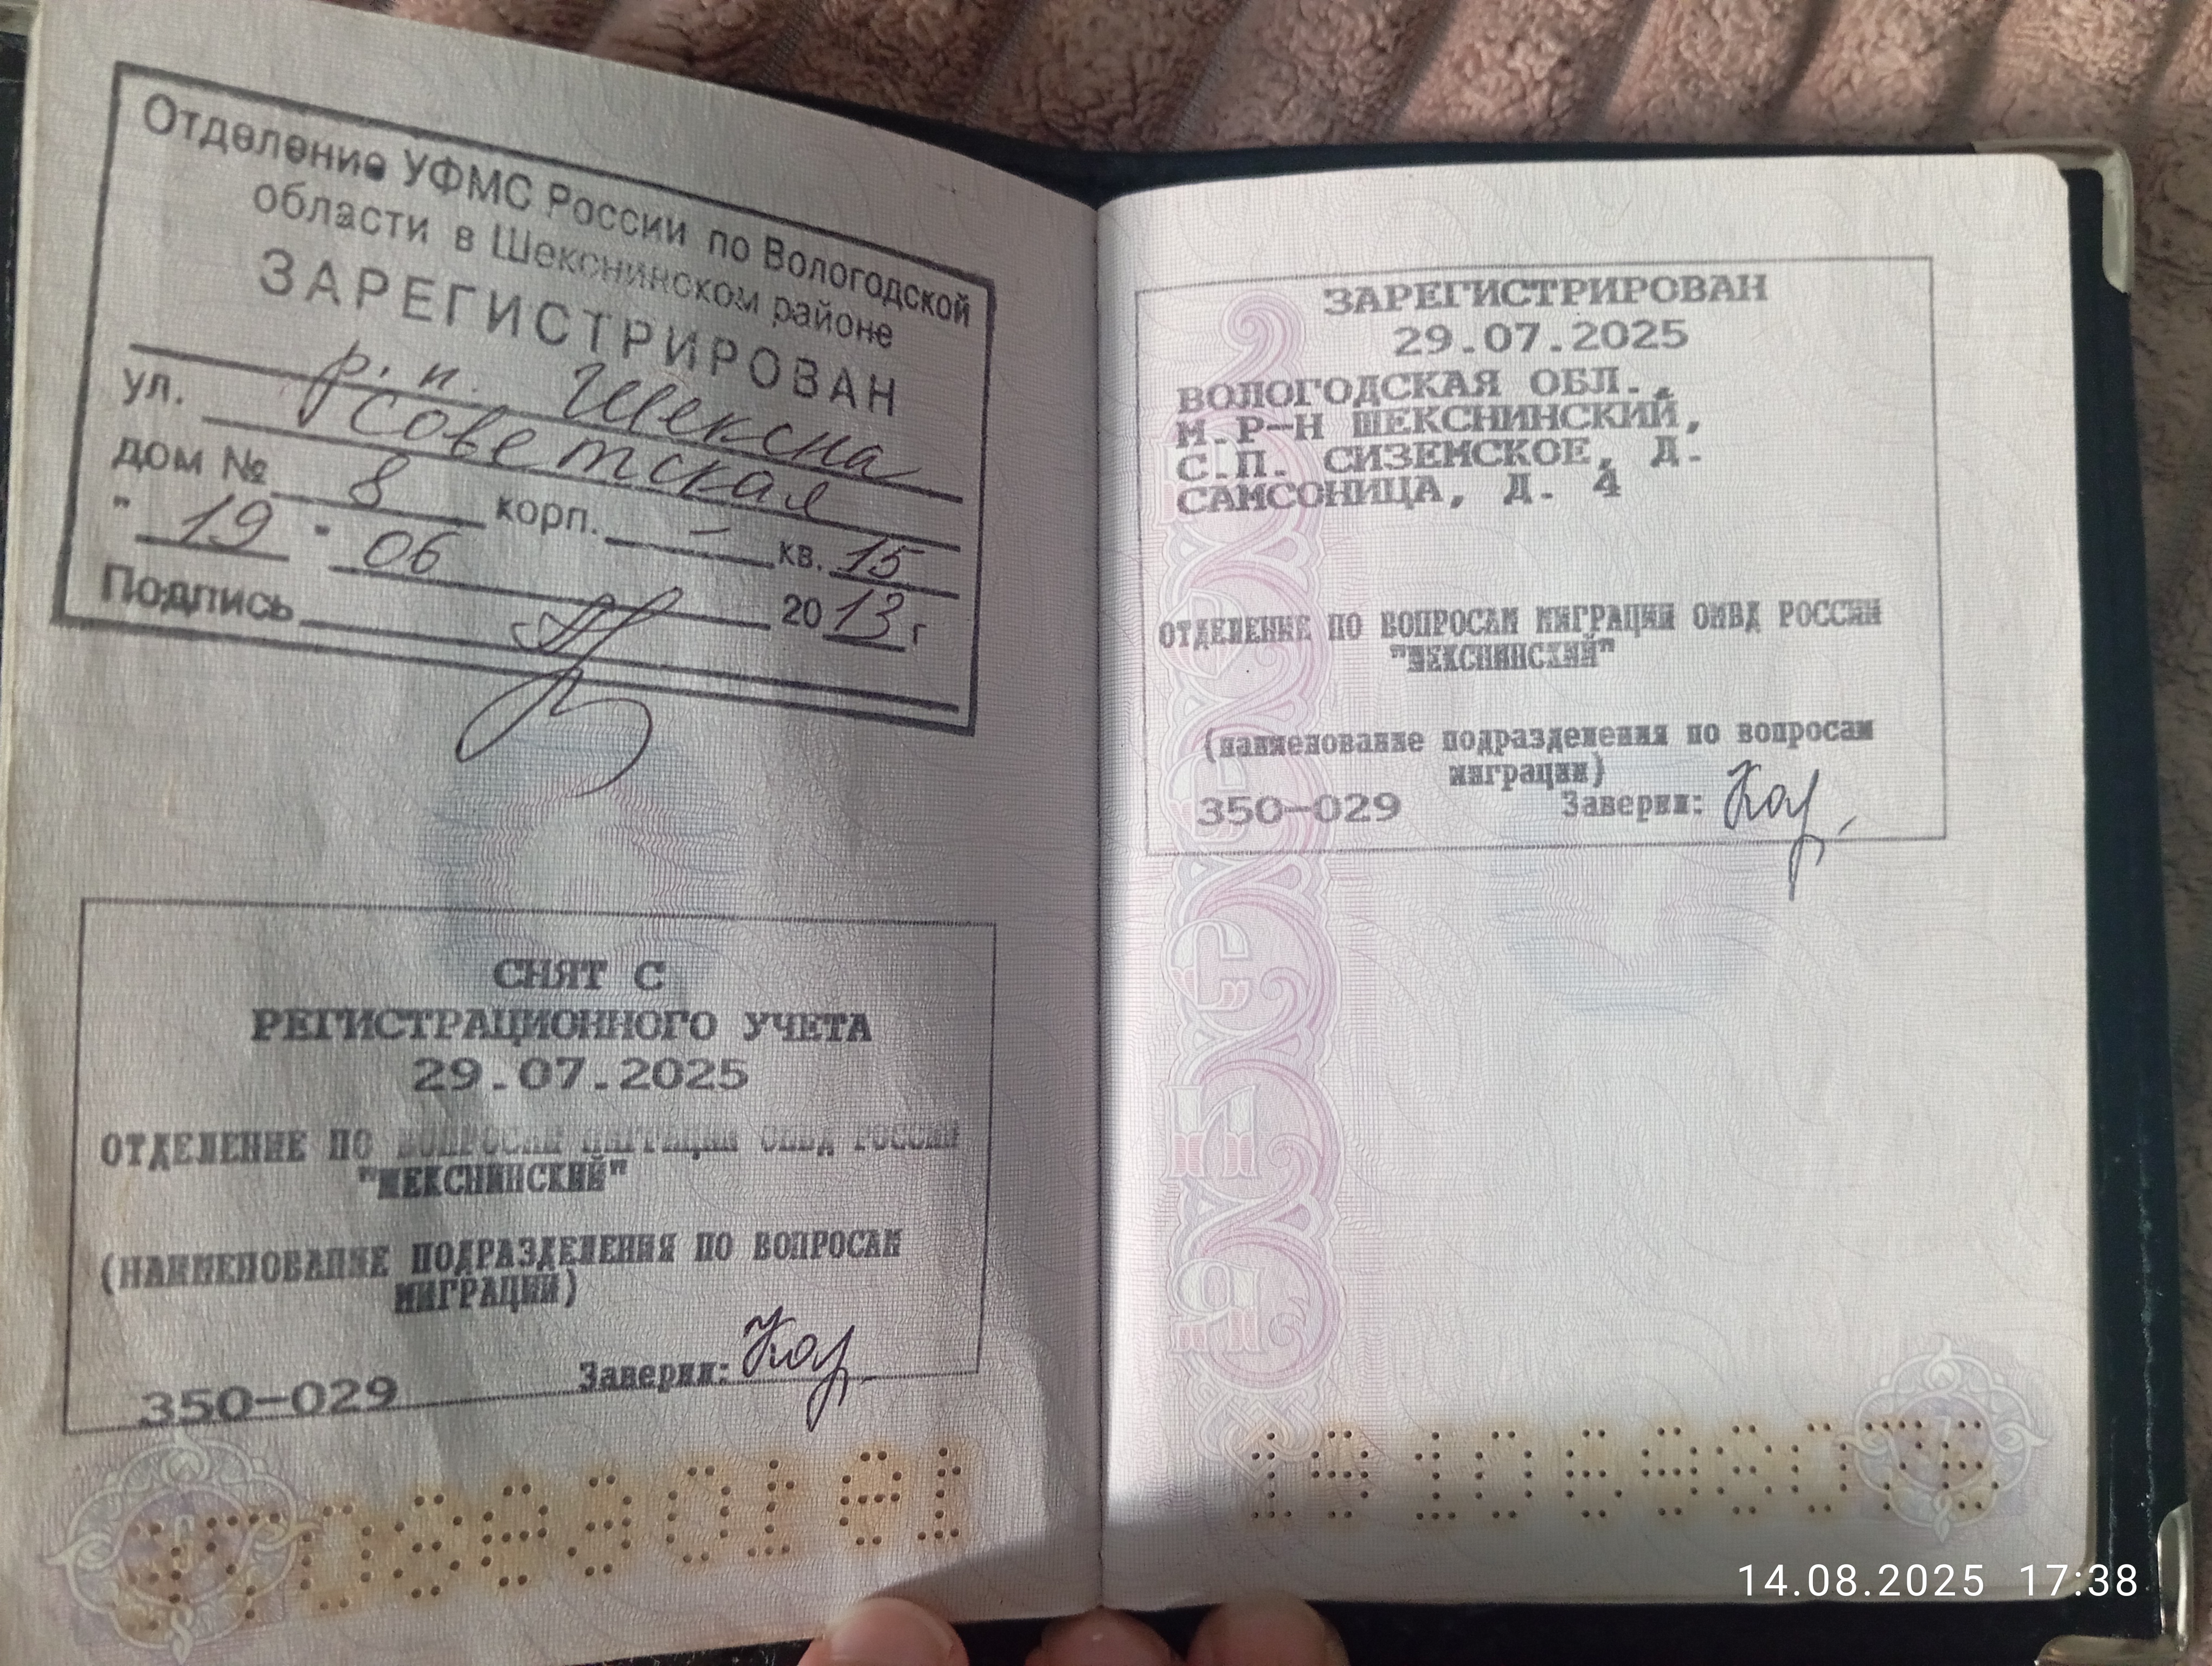 Отделение УФМС России по Вологодской
области в Шекснинском районе
ЗАРЕГИСТРИРОВАН
р.п. Шексна
ул. Советская
дом № 8 корп. - кв. 15
" 19 " 06 2013 г
Подпись
СНЯТ С
РЕГИСТРАЦИОННОГО УЧЕТА
29.07.2025
ОТДЕЛЕНИЕ ПО ВОПРОСАМ МИГРАЦИИ ОМВД РОССИИ
"ШЕКСНИНСКИЙ"
(НАИМЕНОВАНИЕ ПОДРАЗДЕЛЕНИЯ ПО ВОПРОСАМ
МИГРАЦИИ)
350-029 Заверил:
ЗАРЕГИСТРИРОВАН
29.07.2025
ВОЛОГОДСКАЯ ОБЛ.,
М.Р-Н ШЕКСНИНСКИЙ,
С.П. СИЗЕМСКОЕ, Д.
САМСОНИЦА, Д. 4
ОТДЕЛЕНИЕ ПО ВОПРОСАМ МИГРАЦИИ ОМВД РОССИИ
"ШЕКСНИНСКИЙ"
(наименование подразделения по вопросам
миграции)
350-029 Заверил:
14.08.2025 17:38